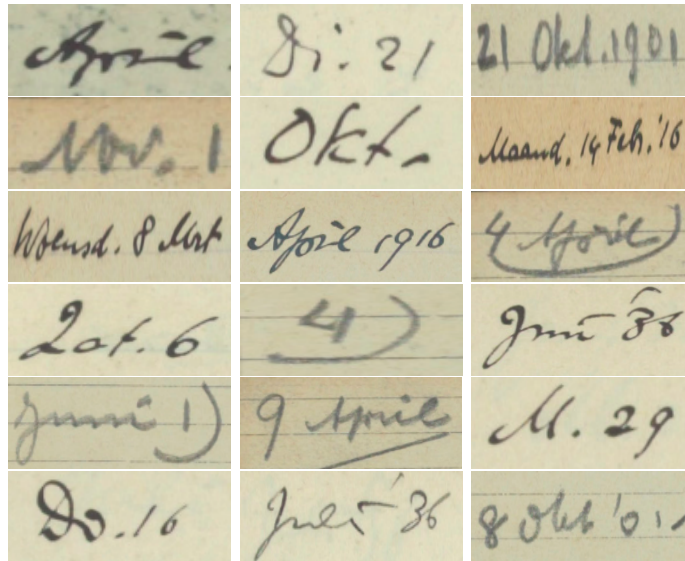 April.
Di. 21
21 Okt. 1901
Nov. 1
Okt.
Maand. 14 Feb. '16
Woensd. 8 Mrt
April 1916
4 April)
Zat. 6
4)
Juni '36
Juni 1)
9 April
M. 29
Do. 16
Juli '36
8 Okt '01